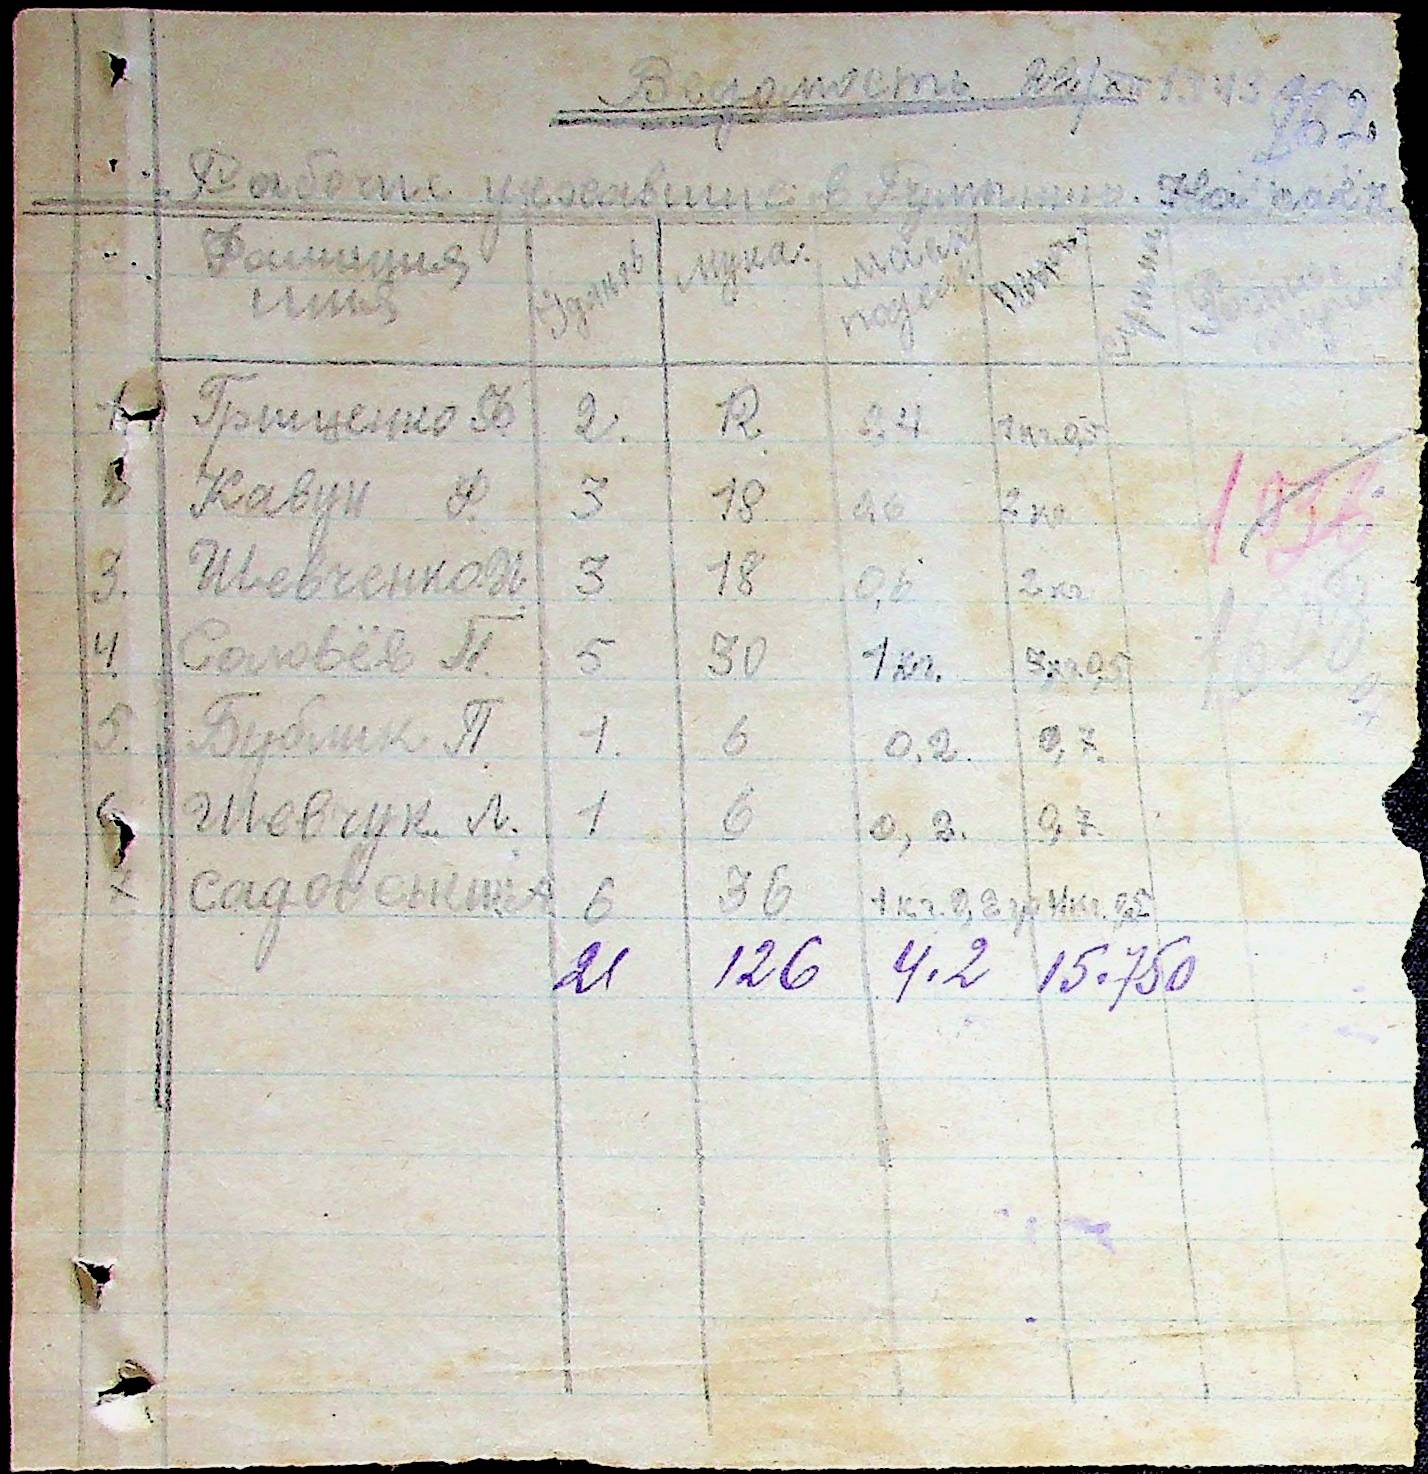 Ведомость 22/XII 1943
262.
Рабочие уехавшие в Румынию. На паёк
Фамилия имя Едаков мука. масло подсол. Сумма
1. Грищенко Ф 2. 12 0,4 1 кг 0,5
2 Кавун Ф. 3 18 0,6 2 кг
3. Шевченко Н. 3 18 0,6 2 кг
4. Соловьёв П. 5 30 1 кг. 3 кг. 0,5
5. Бублик П 1. 6 0,2. 0,7.
6 Шевчук. Л. 1 6 0,2. 0,7.
7 Садовский А 6 36 1 кг. 0,2 гр 4 кг. 0,5
21 126 4.2 15.750